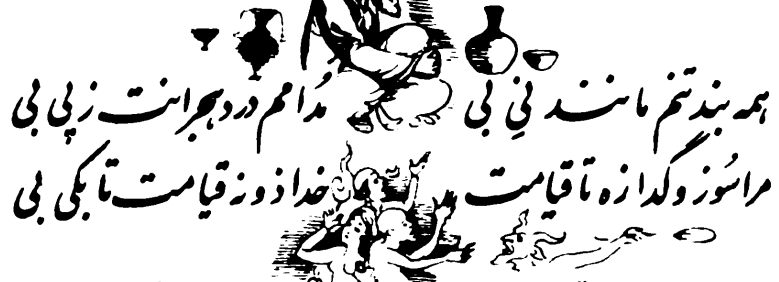 همه بند تنم مانند نی بی مُدامم درد هجرانت ز پی بی
مرا سُوز و گدازه تا قیامت خدا ذونه قیامت تا بکی بی